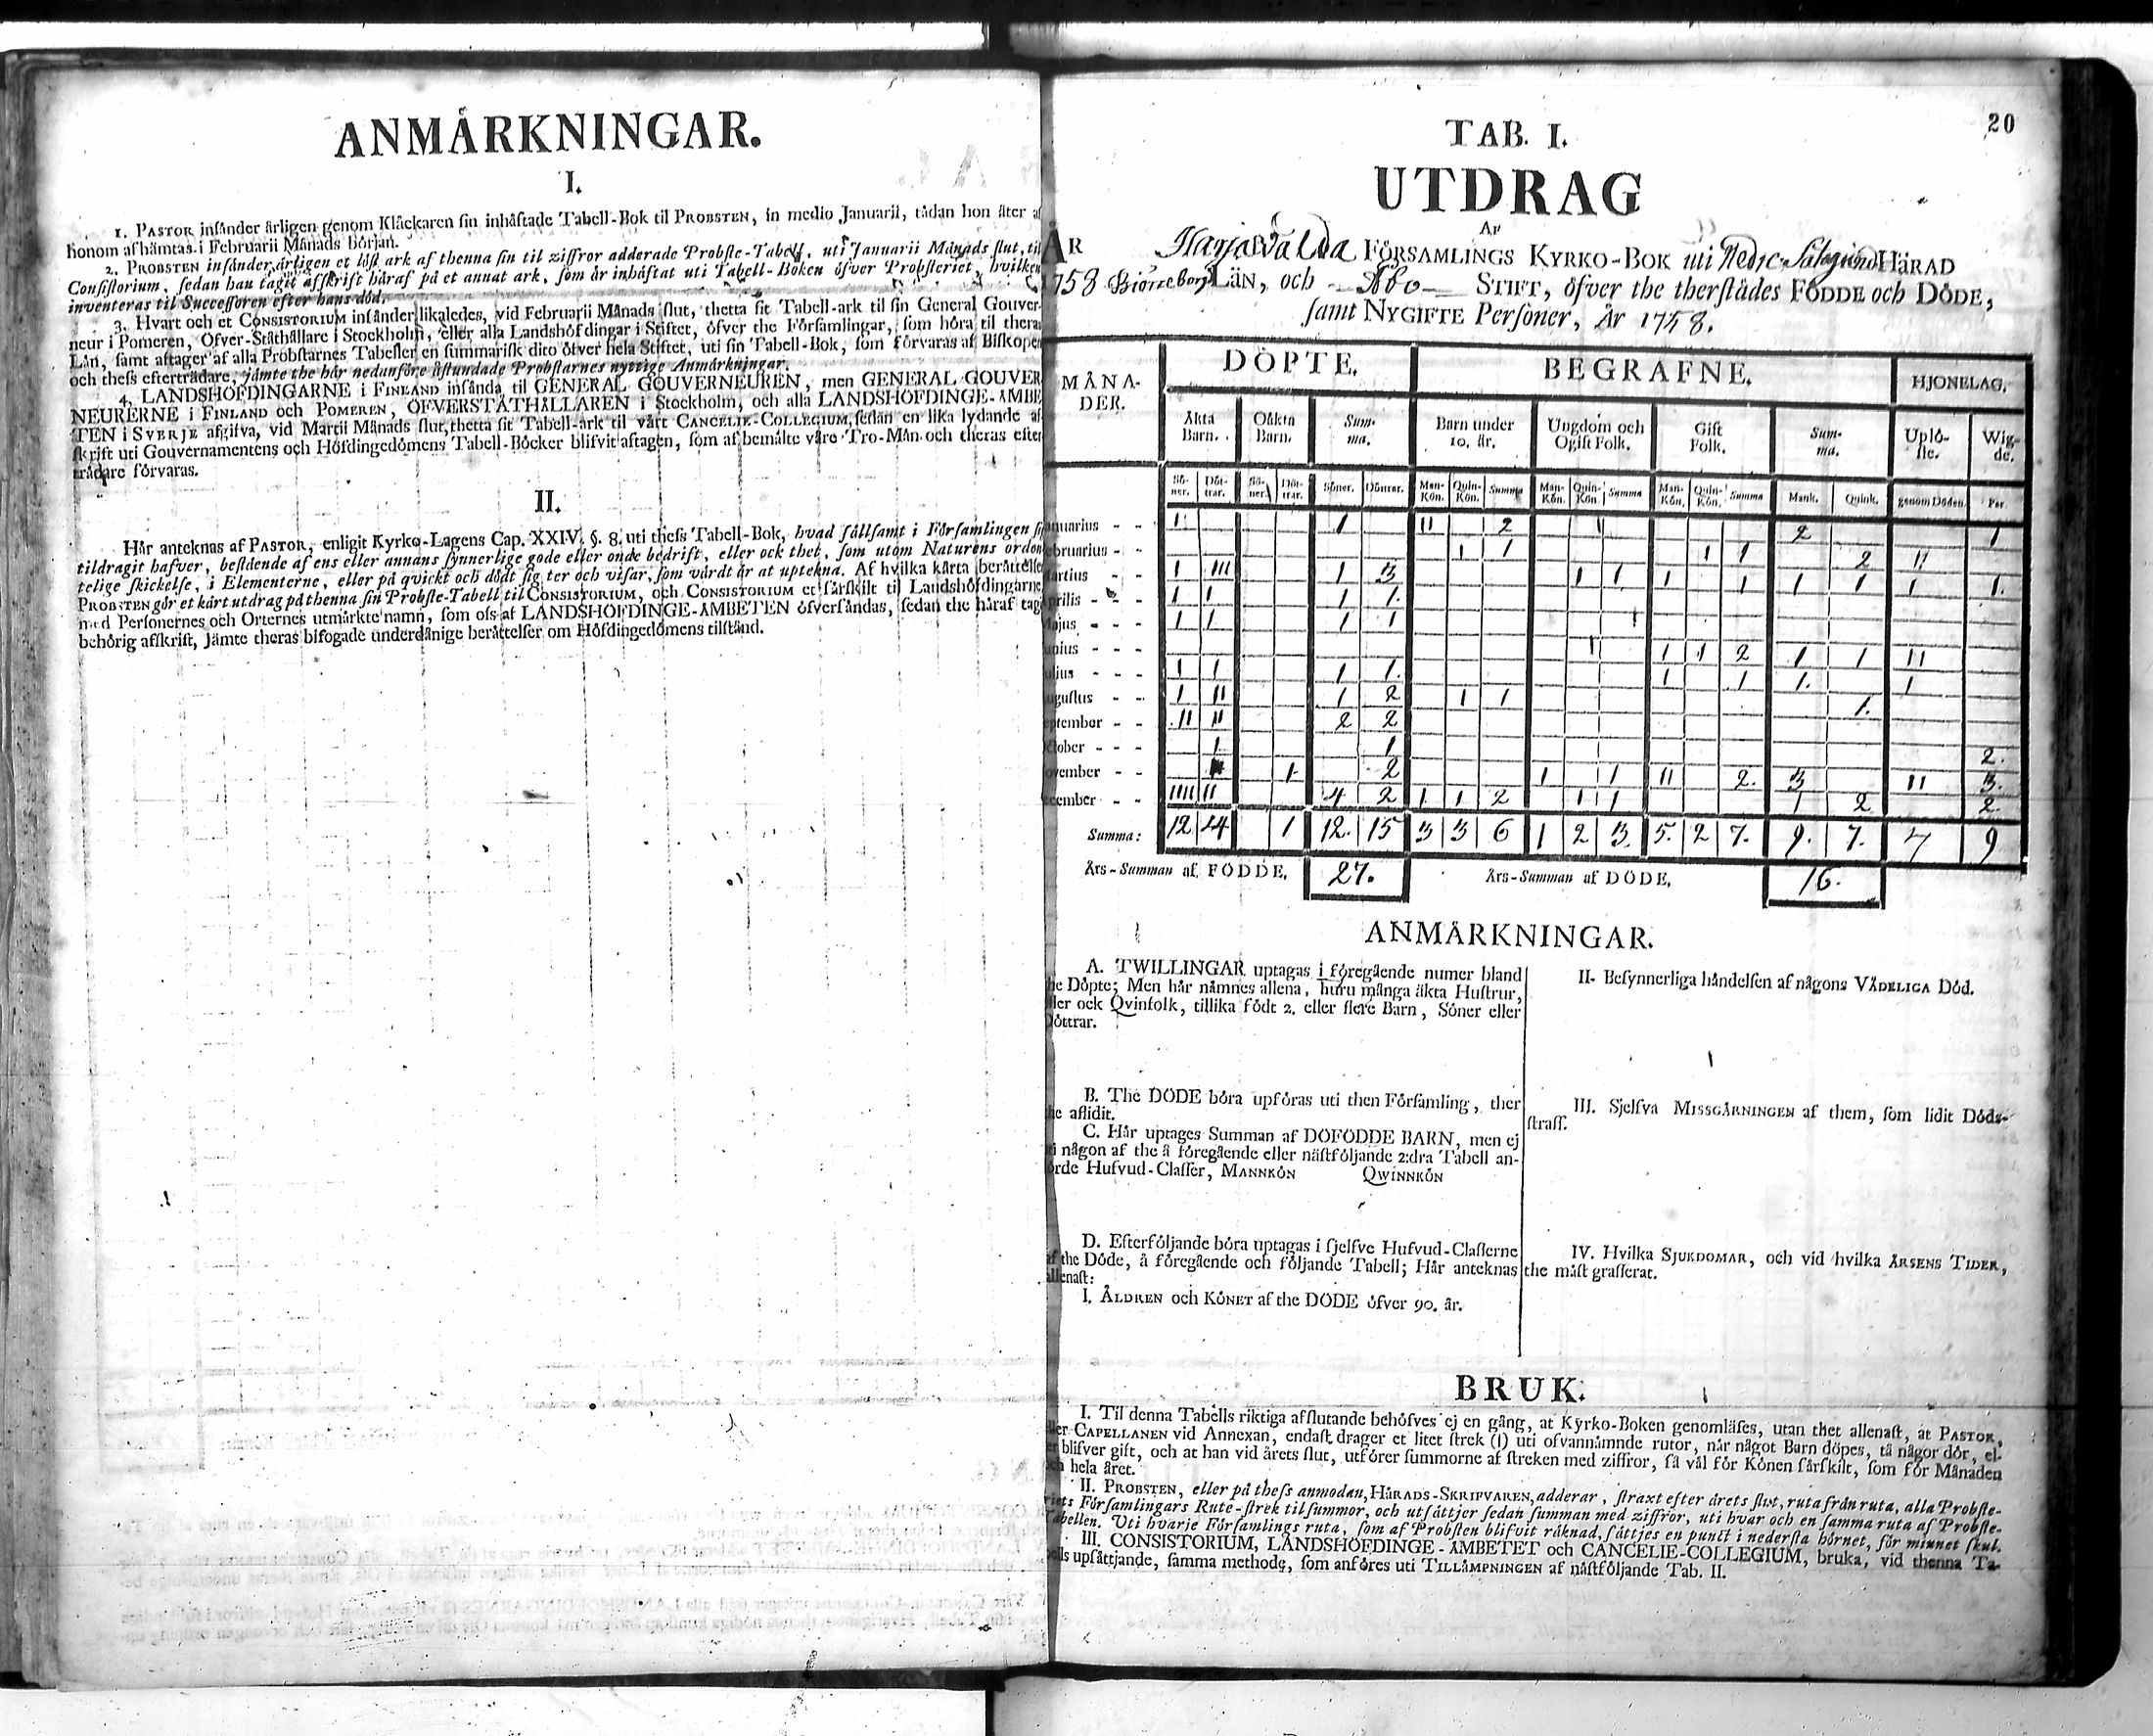 ANMÅRKNINGAR.
I.
1. PASTOR insånder årligen genom Klåckaren sin inhåftade Tabell-Bok til PROBSTEN, in medio Januarii, tådan hon åter af
honom afhåmtas i Februarii Månads början.
2. PROBSTEN insånder årligen et löst ark af thenna sin til ziffror adderade Probste-Tabell, uti Januarii Månads slut, til
Consistorium, sedan han tagit afskrift håraf på et annat ark, som år inhåftat uti Tabell-Boken öfver Probsteriet, hvilken
inventeras til Successoren efter hans död.
3. Hvart och et CONSISTORIUM insånder likaledes, vid Februarii Månads slut, thetta sit Tabell-ark til sin General Gouver-
neur i Pomeren, Öfver-Ståthållare i Stockholm, eller alla Landshöfdingar i Stiftet, öfver the Församlingar, som höra til theras
Lån, samt aftager af alla Probstarnes Tabeller en summarisk dito öfver hela Stiftet, uti sin Tabell-Bok, som förvaras af Biskopen
och thess eftertrådare, jämte the hår nedanföre åstundade Probstarnes nyttige Anmårkningar.
4. LANDSHÖFDINGARNE i FINLAND insånda til GENERAL GOUVERNEUREN, men GENERAL GOUVER
NEURERNE i FINLAND och POMEREN, ÖFVERSTÅTHÅLLAREN i Stockholm, och alla LANDSHÖFDINGE-ÅMBE
TEN i SVERJE afgifva, vid Martii Månads slut, thetta sit Tabell-ark til vårt CANCELIE-COLLEGIUM, sedan en lika lydande af-
skrift uti Gouvernamentens och Höfdingedömens Tabell-Böcker blifvit aftagen, som af bemålte våre Tro-Mån och theras efter
trådare förvaras.
II.
Hår anteknas af PASTOR, enligit Kyrko-Lagens Cap. XXIV. §. 8. uti thess Tabell-Bok, hvad sållsamt i Församlingen sig
tildragit hafver, bestdende af ens eller annans synnerlige gode eller onde bedrift, eller ock thet, som utom Naturens orden
telige skickelse, i Elementerne, eller på qvickt och dödt sig ter och visar, som vårdt år at uptekna. Af hvilka kårta beråttelser
PROBSTEN gör et kårt utdrag på thenna sin Probste-Tabell til CONSISTORIUM, och CONSISTORIUM et sårskilt til Landshöfdingarne
med Personernes och Orternes utmårkte namn, som oss af LANDSHÖFDINGE-ÅMBETEN öfversåndas, sedan the håraf tagit
behörig afskrift, jämte theras bifogade underdånige beråttelser om Höfdingedömens tilstånd.
20
TAB. I.
UTDRAG
AF
ÅR Harjavalda FÖRSAMLINGS KYRKO-BOK uti Nedre Satagundo HÅRAD
758 Biörneborgs LÄN, och Åbo STIFT, öfver the therstådes FÖDDE och DÖDE,
samt NYGIFTE Personer, År 1758.
MÅNA-DER. DÖPTE. BEGRAFNE. HJONELAG.
Åkta Barn. Oåkta Barn. Sum-ma. Barn under 10. år. Ungdom och Ogift Folk. Gift Folk. Sum-ma. Uplö-ste. Wig-de.
Sö-ner. Döt-trar. Sö-ner. Döt-trar. Söner. Döttrar. Man-Kön. Quin-Kön. Summa Man-Kön. Quin-Kön. Summa Man-Kön. Quin-Kön. Summa Mank. Quink. genom Döden. Par.
anuarius - - 1 1 11 2 2 1
ebruarius - - 1 1 1 1 2 11
artius - - 1 111 1 3 1 1 1 1 1 1 1 1.
prilis - - 1 1 1 1.
ajus - - - 1 1 1 1
unius - - - 1 1 2 1 1 11
ulius - - - 1 1 1 1. 1 1 1. 1
ugustus - - 1 11 1 2 1 1 1.
eptember - - 11 11 2 2
ctober - - - 1. 1 2.
ovember - - 1 2 1 1 11 2. 3 11 3.
ecember - - 1111 11 4 2 1 1 2 1 1 1 2 2.
Summa: 12 14 1 12. 15 3 3 6 1 2 3. 5. 2 7. 9. 7. 7 9
Års-Summan af FÖDDE, 27. Års-Summan af DÖDE, 16.
ANMÄRKNINGAR.
A. TWILLINGAR uptagas i föregående numer bland
he Döpte; Men hår nåmnes allena, huru många äkta Hustrur,
ller ock Qvinfolk, tillika födt 2. eller flere Barn, Söner eller
Döttrar.
B. The DÖDE böra upföras uti then Församling, ther
he aflidit.
C. Hår uptages Summan af DÖFÖDDE BARN, men ej
i någon af the å föregående eller nästföljande 2:dra Tabell an-
örde Hufvud-Classer, MANNKÖN QWINNKÖN
D. Efterföljande böra uptagas i sjelfve Hufvud-Classerne
af the Döde, å föregående och följande Tabell; Hår anteknas
allenast:
I. ÅLDREN och KÖNET af the DÖDE öfver 90. år.
II. Besynnerliga håndelsen af någons VÅDELIGA Död.
III. Sjelfva MISSGÅRNINGEN af them, som lidit Döds-
straff.
IV. Hvilka SJUKDOMAR, och vid hvilka ÅRSENS TIDER,
the måst grasserat.
BRUK.
I. Til denna Tabells riktiga afslutande behöfves ej en gång, at Kyrko-Boken genomläses, utan thet allenast, at PASTOR,
ller CAPELLANEN vid Annexan, endast drager et litet strek (I) uti ofvannåmnde rutor, når något Barn döpes, tå någor dör, el-
er blifver gift, och at han vid årets slut, utförer summorne af streken med ziffror, så vål för Könen sårskilt, som för Månaden
och hela året.
II. PROBSTEN, eller på thess anmodan, HÅRADS-SKRIFVAREN, adderar, straxt efter årets slut, ruta från ruta, alla Probste-
riets Församlingars Rute-strek til summor, och utsåttjer sedan summan med ziffror, uti hvar och en samma ruta af Probste-
Tabellen. Uti hvarje Församlings ruta, som af Probsten blifvit råknad, såttjes en punct i nedersta hörnet, för minnet skul.
III. CONSISTORIUM, LANDSHÖFDINGE-ÅMBETET och CANCELIE-COLLEGIUM, bruka, vid thenna Ta-
bells upsåttjande, samma methode, som anföres uti TILLÅMPNINGEN af nåstföljande Tab. II.